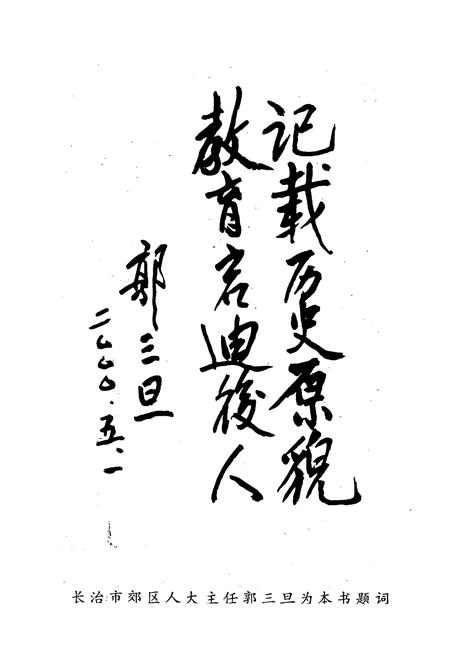 记载历史原貌
教育启迪後人
郭三旦
二〇〇〇.五.一
长治市郊区人大主任郭三旦为本书题词